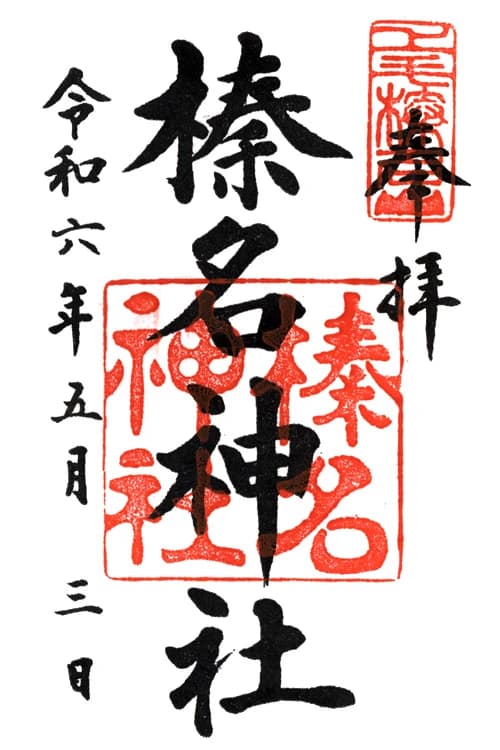 奉拝
榛名神社
榛名神社
令和六年五月三日